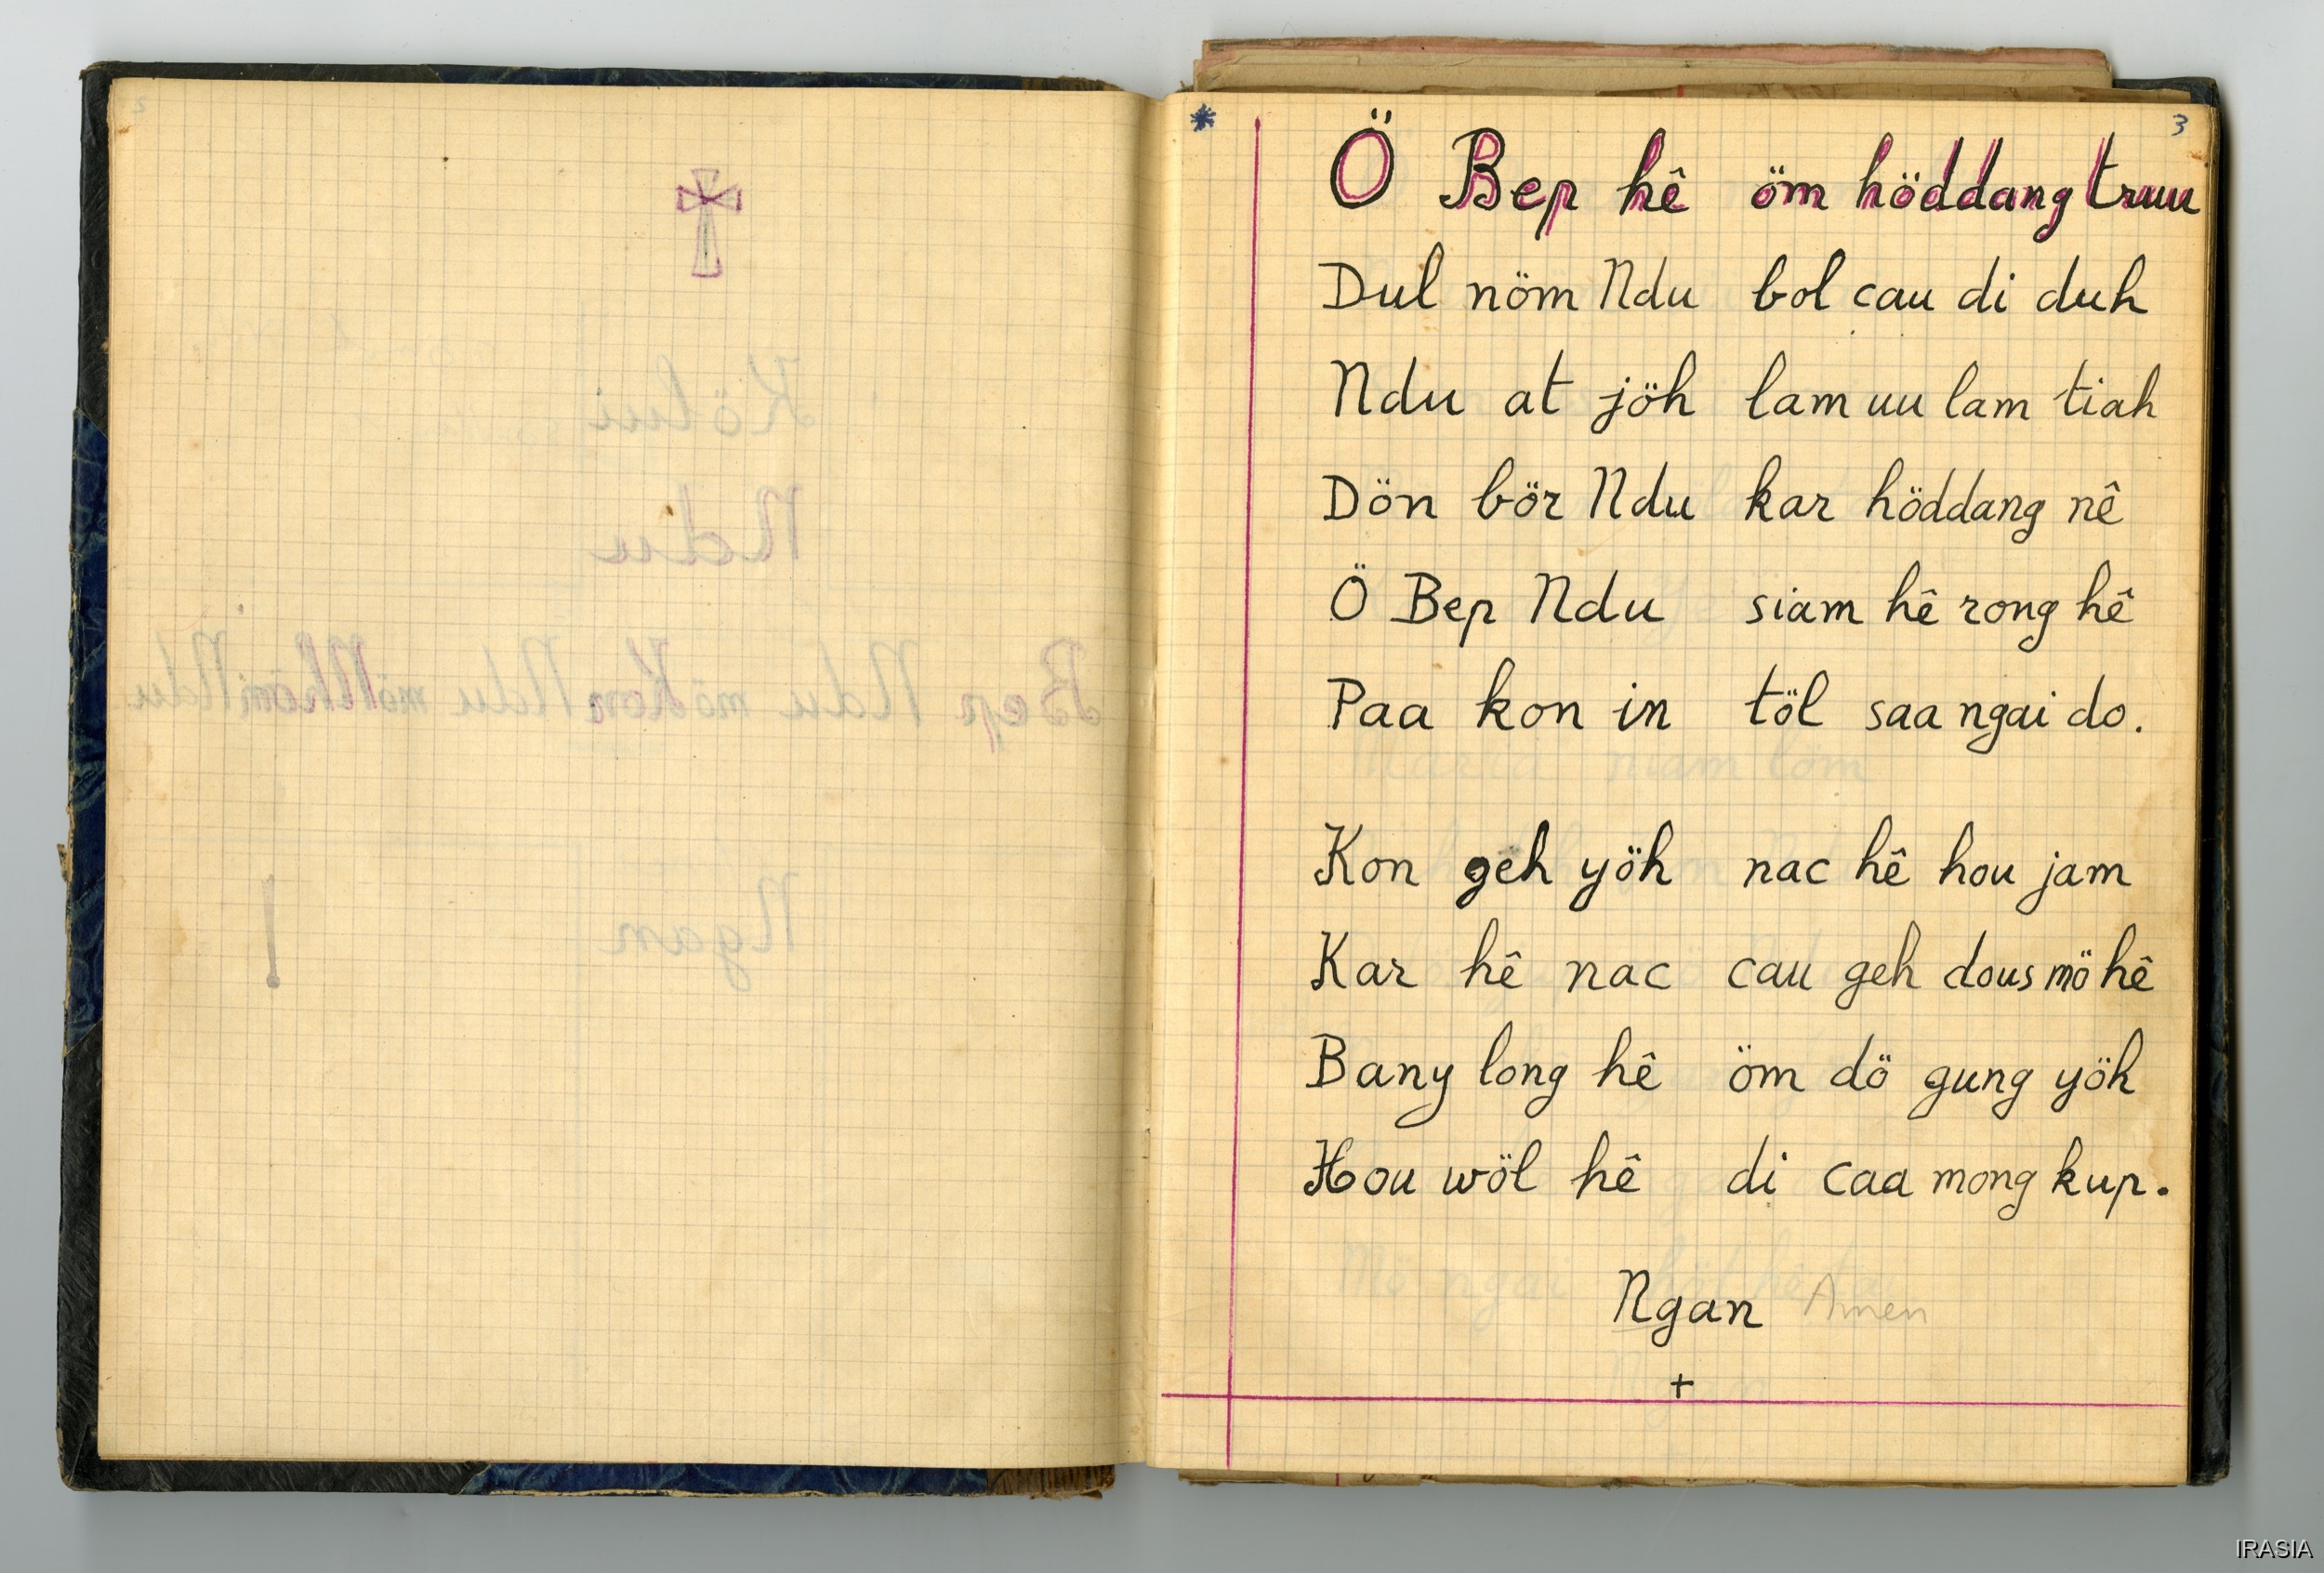 3
Ö Bep hê öm höddang truu
Dul nöm Ndu bol cau di duh
Ndu at jöh lam uu lam tiah
Dön bör Ndu kar höddang nê
Ö Bep Ndu siam hê rong hê
Paa kon in töl saa ngai do.
Kon geh yöh nac hê hou jam
Kar hê nac cau geh dous mö hê
Bany long hê öm dö gung yöh
Hou wöl hê di caa mong kup.
Ngan Amen
IRASIA